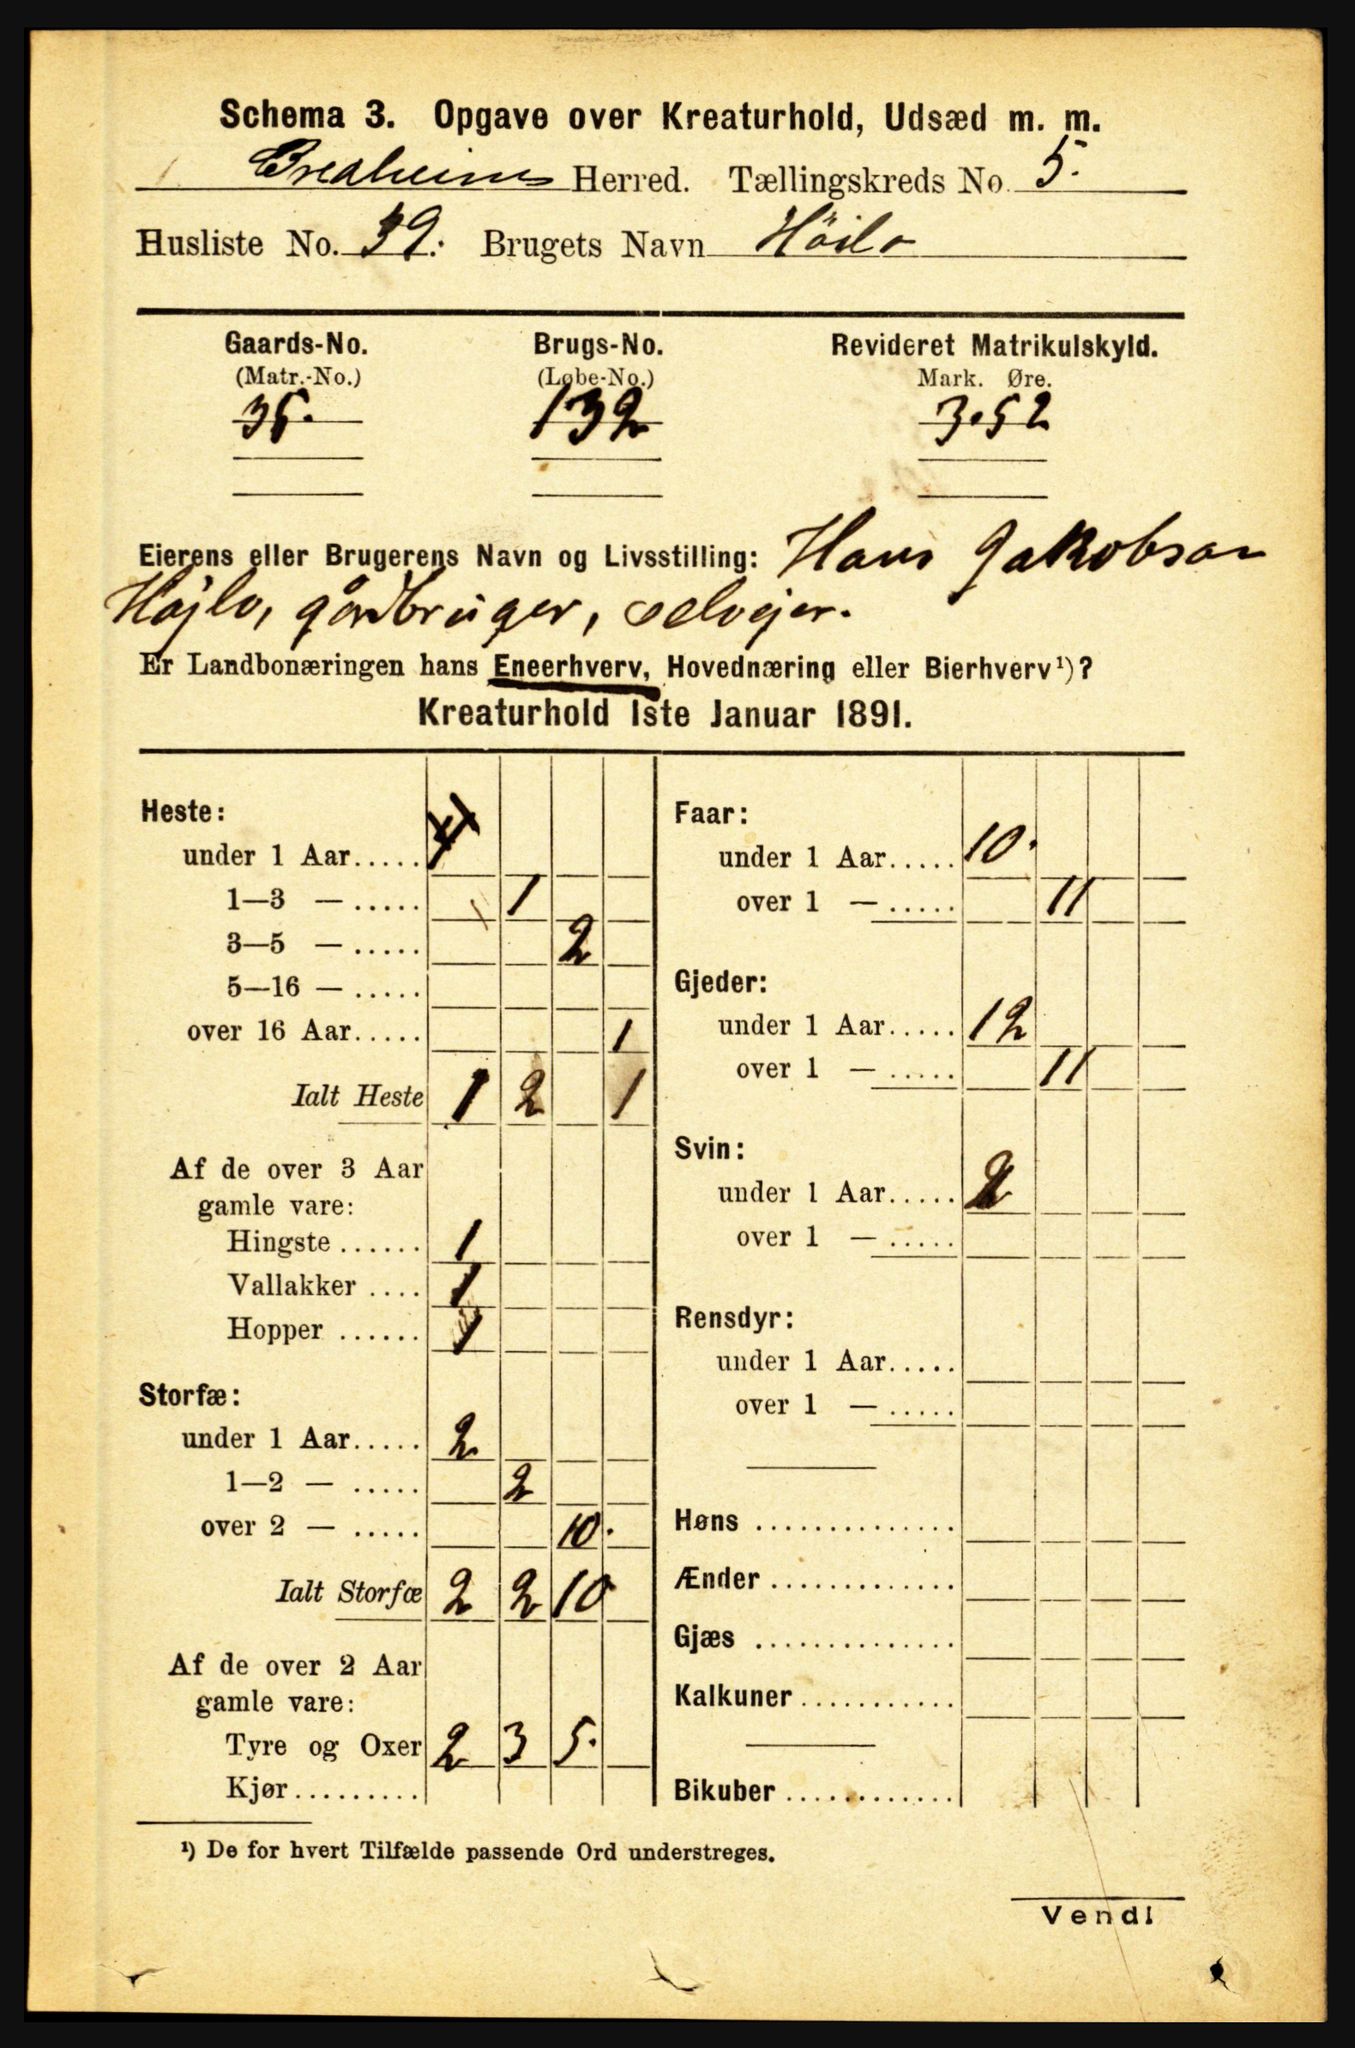 Schema 3. Opgave over Kreaturhold, Udsæd m. m.
Bredheim Herred. Tællingskreds No. 5.
Husliste No. 39. Brugets Navn Höilo
Gaards-No. Brugs-No. Revideret Matrikulskyld.
(Matr.-No.) (Løbe-No.) Mark. Øre.
35. 132 3.52
Eierens eller Brugerens Navn og Livsstilling: Hans Jakobsen
Højlo, gårdbruger, selvejer.
Er Landbonæringen hans Eneerhverv, Hovednæring eller Bierhverv¹)?
Kreaturhold 1ste Januar 1891.
Heste:
under 1 Aar.....
1—3 — ..... 1
3—5 — ..... 2
5—16 — .....
over 16 Aar..... 1
Ialt Heste 1 2 1
Af de over 3 Aar
gamle vare:
Hingste ...... 1
Vallakker .... 1
Hopper ...... 1
Storfæ:
under 1 Aar..... 2
1—2 — ..... 2
over 2 — ..... 10.
Ialt Storfæ 2 2 10
Af de over 2 Aar
gamle vare:
Tyre og Oxer 2 3 5.
Kjør.........
Faar:
under 1 Aar..... 10.
over 1 — ..... 11
Gjeder:
under 1 Aar..... 12
over 1 — ..... 11
Svin:
under 1 Aar..... 2
over 1 — .....
Rensdyr:
under 1 Aar.....
over 1 — .....
Høns ..............
Ænder .............
Gjæs ..............
Kalkuner...........
Bikuber ............
¹) De for hvert Tilfælde passende Ord understreges.
Vend!